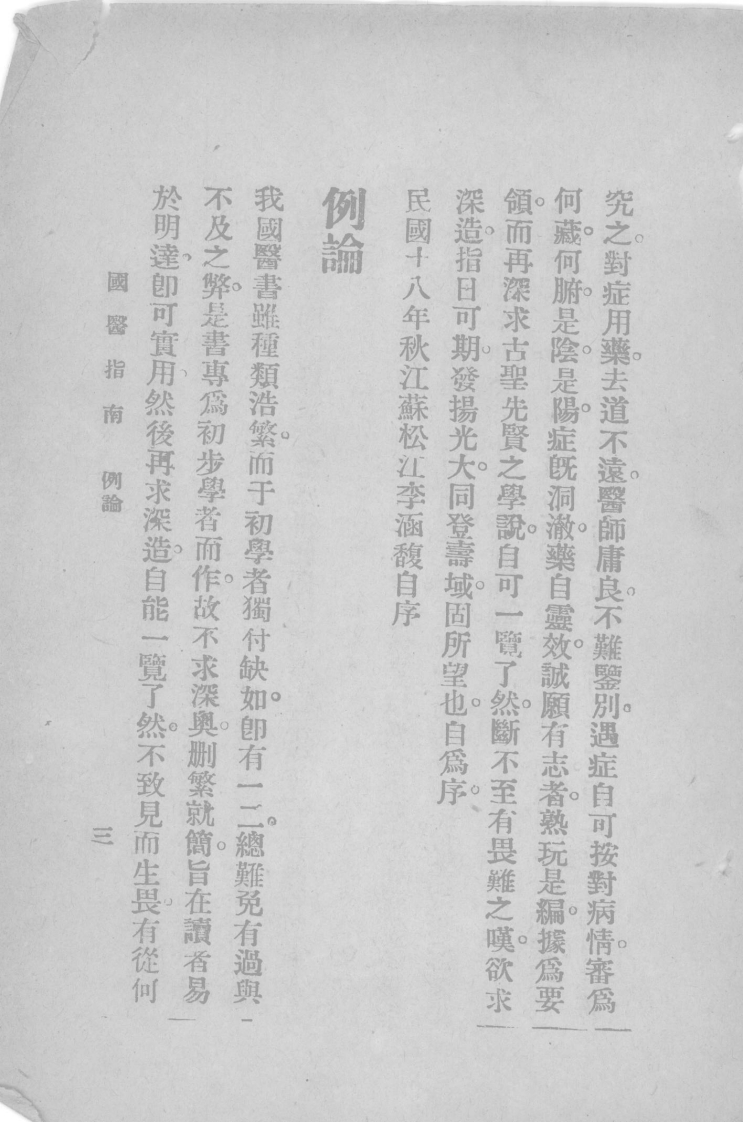 究之。對症用藥。去道不遠。醫師庸良。不難鑒別。遇症自可按對病情。審爲
何藏。何腑。是陰。是陽。症旣洞澈。藥自靈效。誠願有志者。熟玩是編。據爲要
領。而再深求古聖先賢之學說。自可一覽了然。斷不至有畏難之嘆。欲求
深造。指日可期。發揚光大。同登壽域。固所望也。自爲序。
民國十八年秋江蘇松江李涵馥自序
例論
我國醫書雖種類浩繁。而于初學者獨付缺如。卽有一二。總難免有過與
不及之弊。是書專爲初步學者而作。故不求深奧。删繁就簡。旨在讀者易
於明達。卽可實用。然後再求深造。自能一覽了然。不致見而生畏。有從何
國醫指南 例論
三